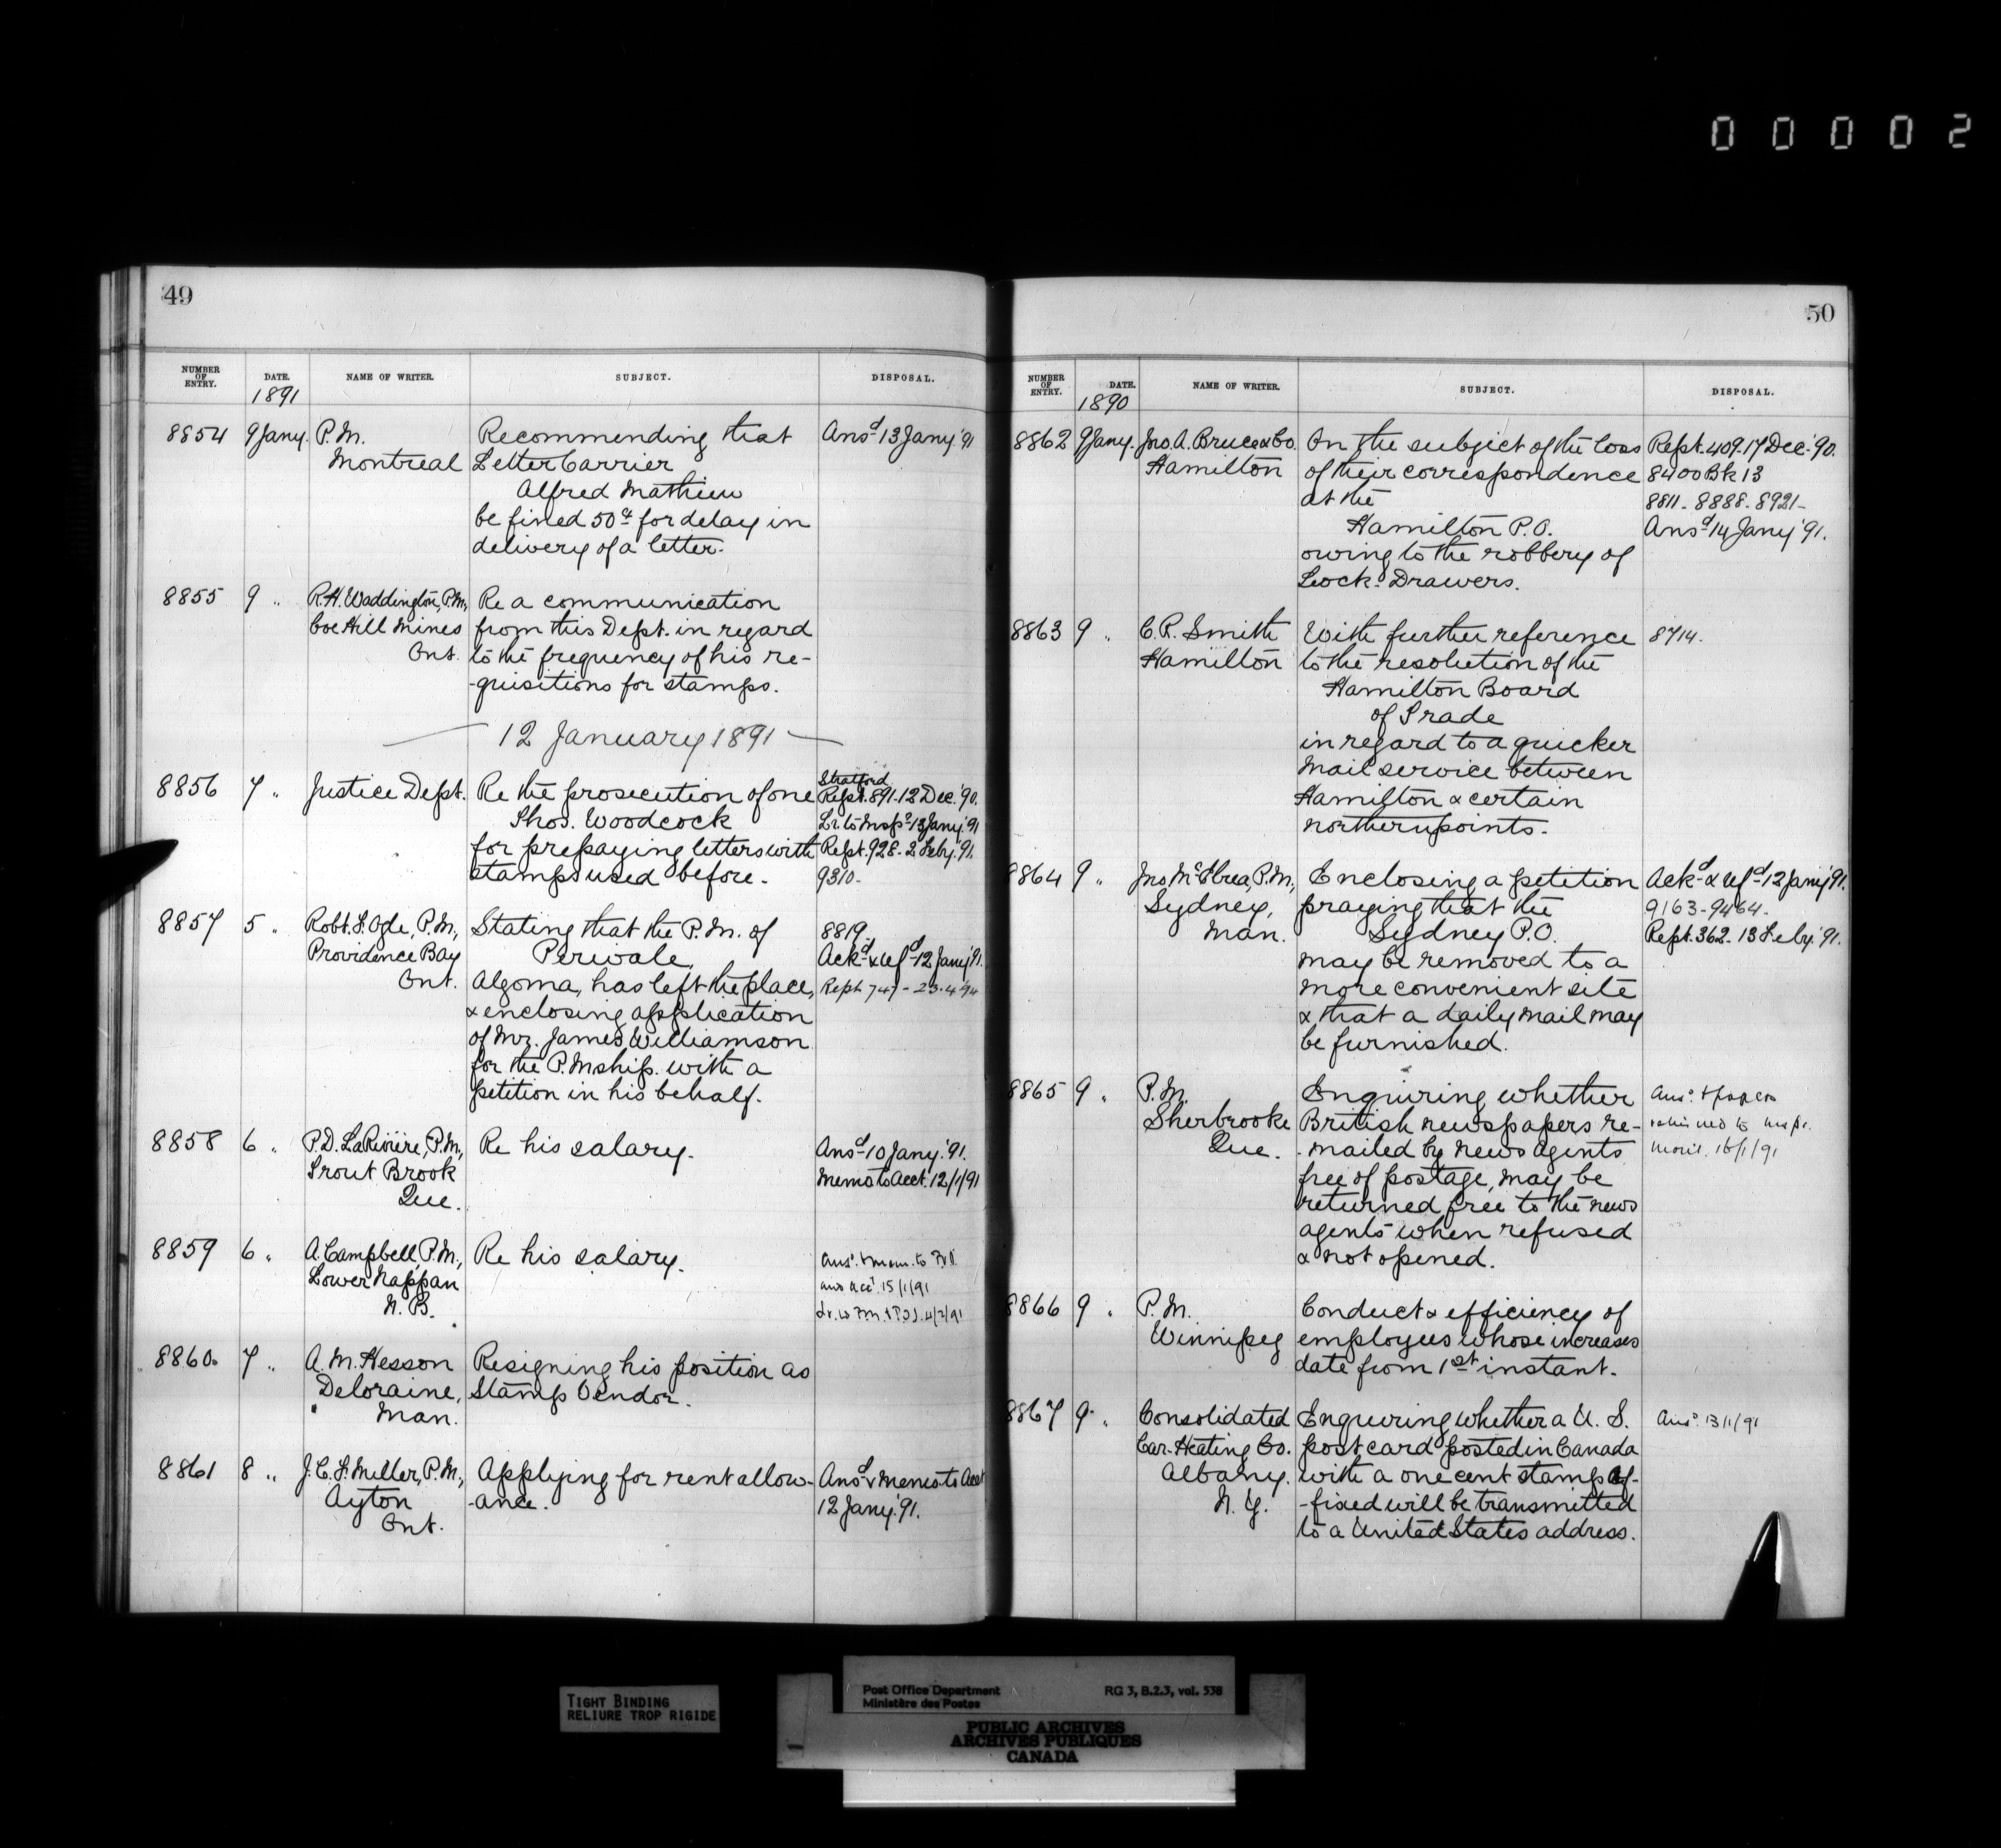 00002
49
NUMBER OF ENTRY. DATE. NAME OF WRITER. SUBJECT. DISPOSAL.
1891
8854 9 Jany. P.M. Recommending that Ansd 13 Jany '91
Montreal Letter Carrier
Alfred Mathieu
be fined 50¢ for delay in
delivery of a letter.
8855 9 " R.H. Waddington, P.M., Re a communication
Coe Hill Mines from this Dept. in regard
Ont. to the frequency of his re-
-quisitions for stamps.
— 12 January 1891 —
8856 7 " Justice Dept. Re the prosecution of one Stratford
Thos. Woodcock Rept. 891. 12 Dec. '90.
for prepaying letters with Lr. to Inspr 13 Jany. '91
stamps used before. Rept. 928. 2 Feby. '91.
9310.
8857 5 " Robt. S. Ogle, P.M., Stating that the P.M. of 8819.
Providence Bay Perivale, Ackd & refd 12 Jany '91.
Ont. Algoma, has left the place, Rept 747 - 23.4.94
& enclosing application
of Mr. James Williamson
for the P.Mship. with a
petition in his behalf.
8858 6 " P.D. LaRivière, P.M., Re his salary. Ansd 10 Jany. '91.
Trout Brook Memo to Acct. 12/1/91
Que.
8859 6 " A. Campbell, P.M., Re his salary. Ansd. & mem. to
Lower Nappan and Acct. 15/1/91
N.B.
8860. 7 " A. M. Hesson Resigning his position as
Deloraine, Stamp Vendor.
Man.
8861 8 " J.C.F. Miller, P.M., Applying for rent allow- Ansd & memo to Acct
Ayton -ance. 12 Jany. '91.
Ont.
50
NUMBER OF ENTRY. DATE. NAME OF WRITER. SUBJECT. DISPOSAL.
1890
8862 9 Jany. Jno. A. Bruce & Co. On the subject of the loss Rept. 409. 17 Dec. '90.
Hamilton of their correspondence 8400 Bk 13
at the 8811 - 8888 - 8921 -
Hamilton P.O. Ansd 14 Jany '91.
owing to the robbery of
Lock-Drawers.
8863 9 " C.R. Smith With further reference 8714.
Hamilton to the resolution of the
Hamilton Board
of Trade
in regard to a quicker
mail service between
Hamilton & certain
northern points.
8864 9 " Jno. McCrea, P.M., Enclosing a petition Ackd & refd 12 Jany '91.
Sydney, praying that the 9163 - 9464.
Man. Sydney P.O. Rept. 362. 13 Feby. '91.
may be removed to a
more convenient site
& that a daily mail may
be furnished.
8865 9 " P.M. Enquiring whether Ansd. & papers
Sherbrooke British newspapers re- returned to Inspr.
Que. -mailed by news agents Mont. 16/1/91
free of postage, may be
returned free to the news
agents when refused
& not opened.
8866 9 " P.M. Conduct & efficiency of
Winnipeg employees whose increases
date from 1st instant.
8867 9 " Consolidated Enquiring whether a U.S. Ansd. 13/1/91
Car-Heating Co. post card posted in Canada
Albany. with a one cent stamp af-
N.Y. -fixed will be transmitted
to a United States address.
TIGHT BINDING
RELIURE TROP RIGIDE
Post Office Department RG 3, B.2.3, vol. 538
Ministère des Postes
PUBLIC ARCHIVES
ARCHIVES PUBLIQUES
CANADA